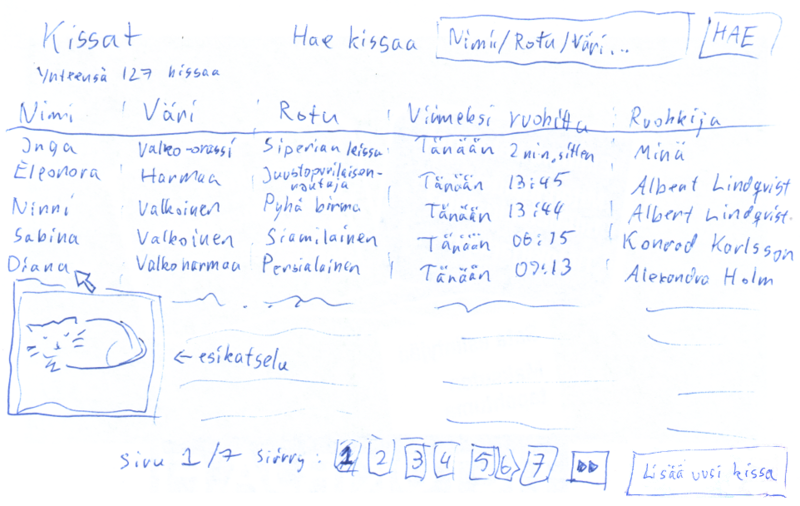 Kissat Hae kissaa Nimi/Rotu/Väri... HAE
Yhteensä 127 kissaa
Nimi Väri Rotu Viimeksi ruokittu Ruokkija
Inga Valko-oranssi Siperian kissa Tänään 2 min. sitten Minä
Eleonora Harmaa Juustopurilaisen- Tänään 13:45 Albert Lindqvist
noutaja
Ninni Valkoinen Pyhä birma Tänään 13:44 Albert Lindqvist
Sabina Valkoinen Siamilainen Tänään Konrad Karlsson
Diana Valkoharmaa Persialainen Tänään 09:13 Alexandra Holm
← esikatselu
Sivu 1/7 Siirry: 1 2 3 4 5 6 7 Lisää uusi kissa